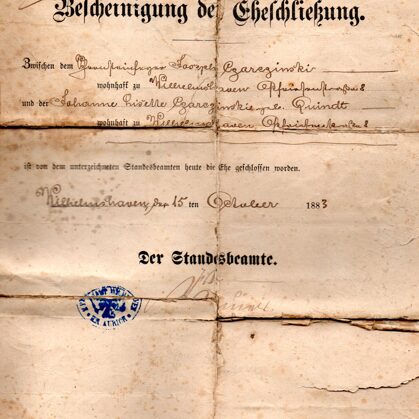 Bescheinigung der Eheschließung.
Zwischen dem Joseph Czarczinski
wohnhaft zu Wilhelmshaven
und der Johanne Lisette Czarczinski geb. Quindt
wohnhaft zu Wilhelmshaven
ist von dem unterzeichneten Standesbeamten heute die Ehe geschlossen worden.
Wilhelmshaven, den 15 ten October 1883
Der Standesbeamte.